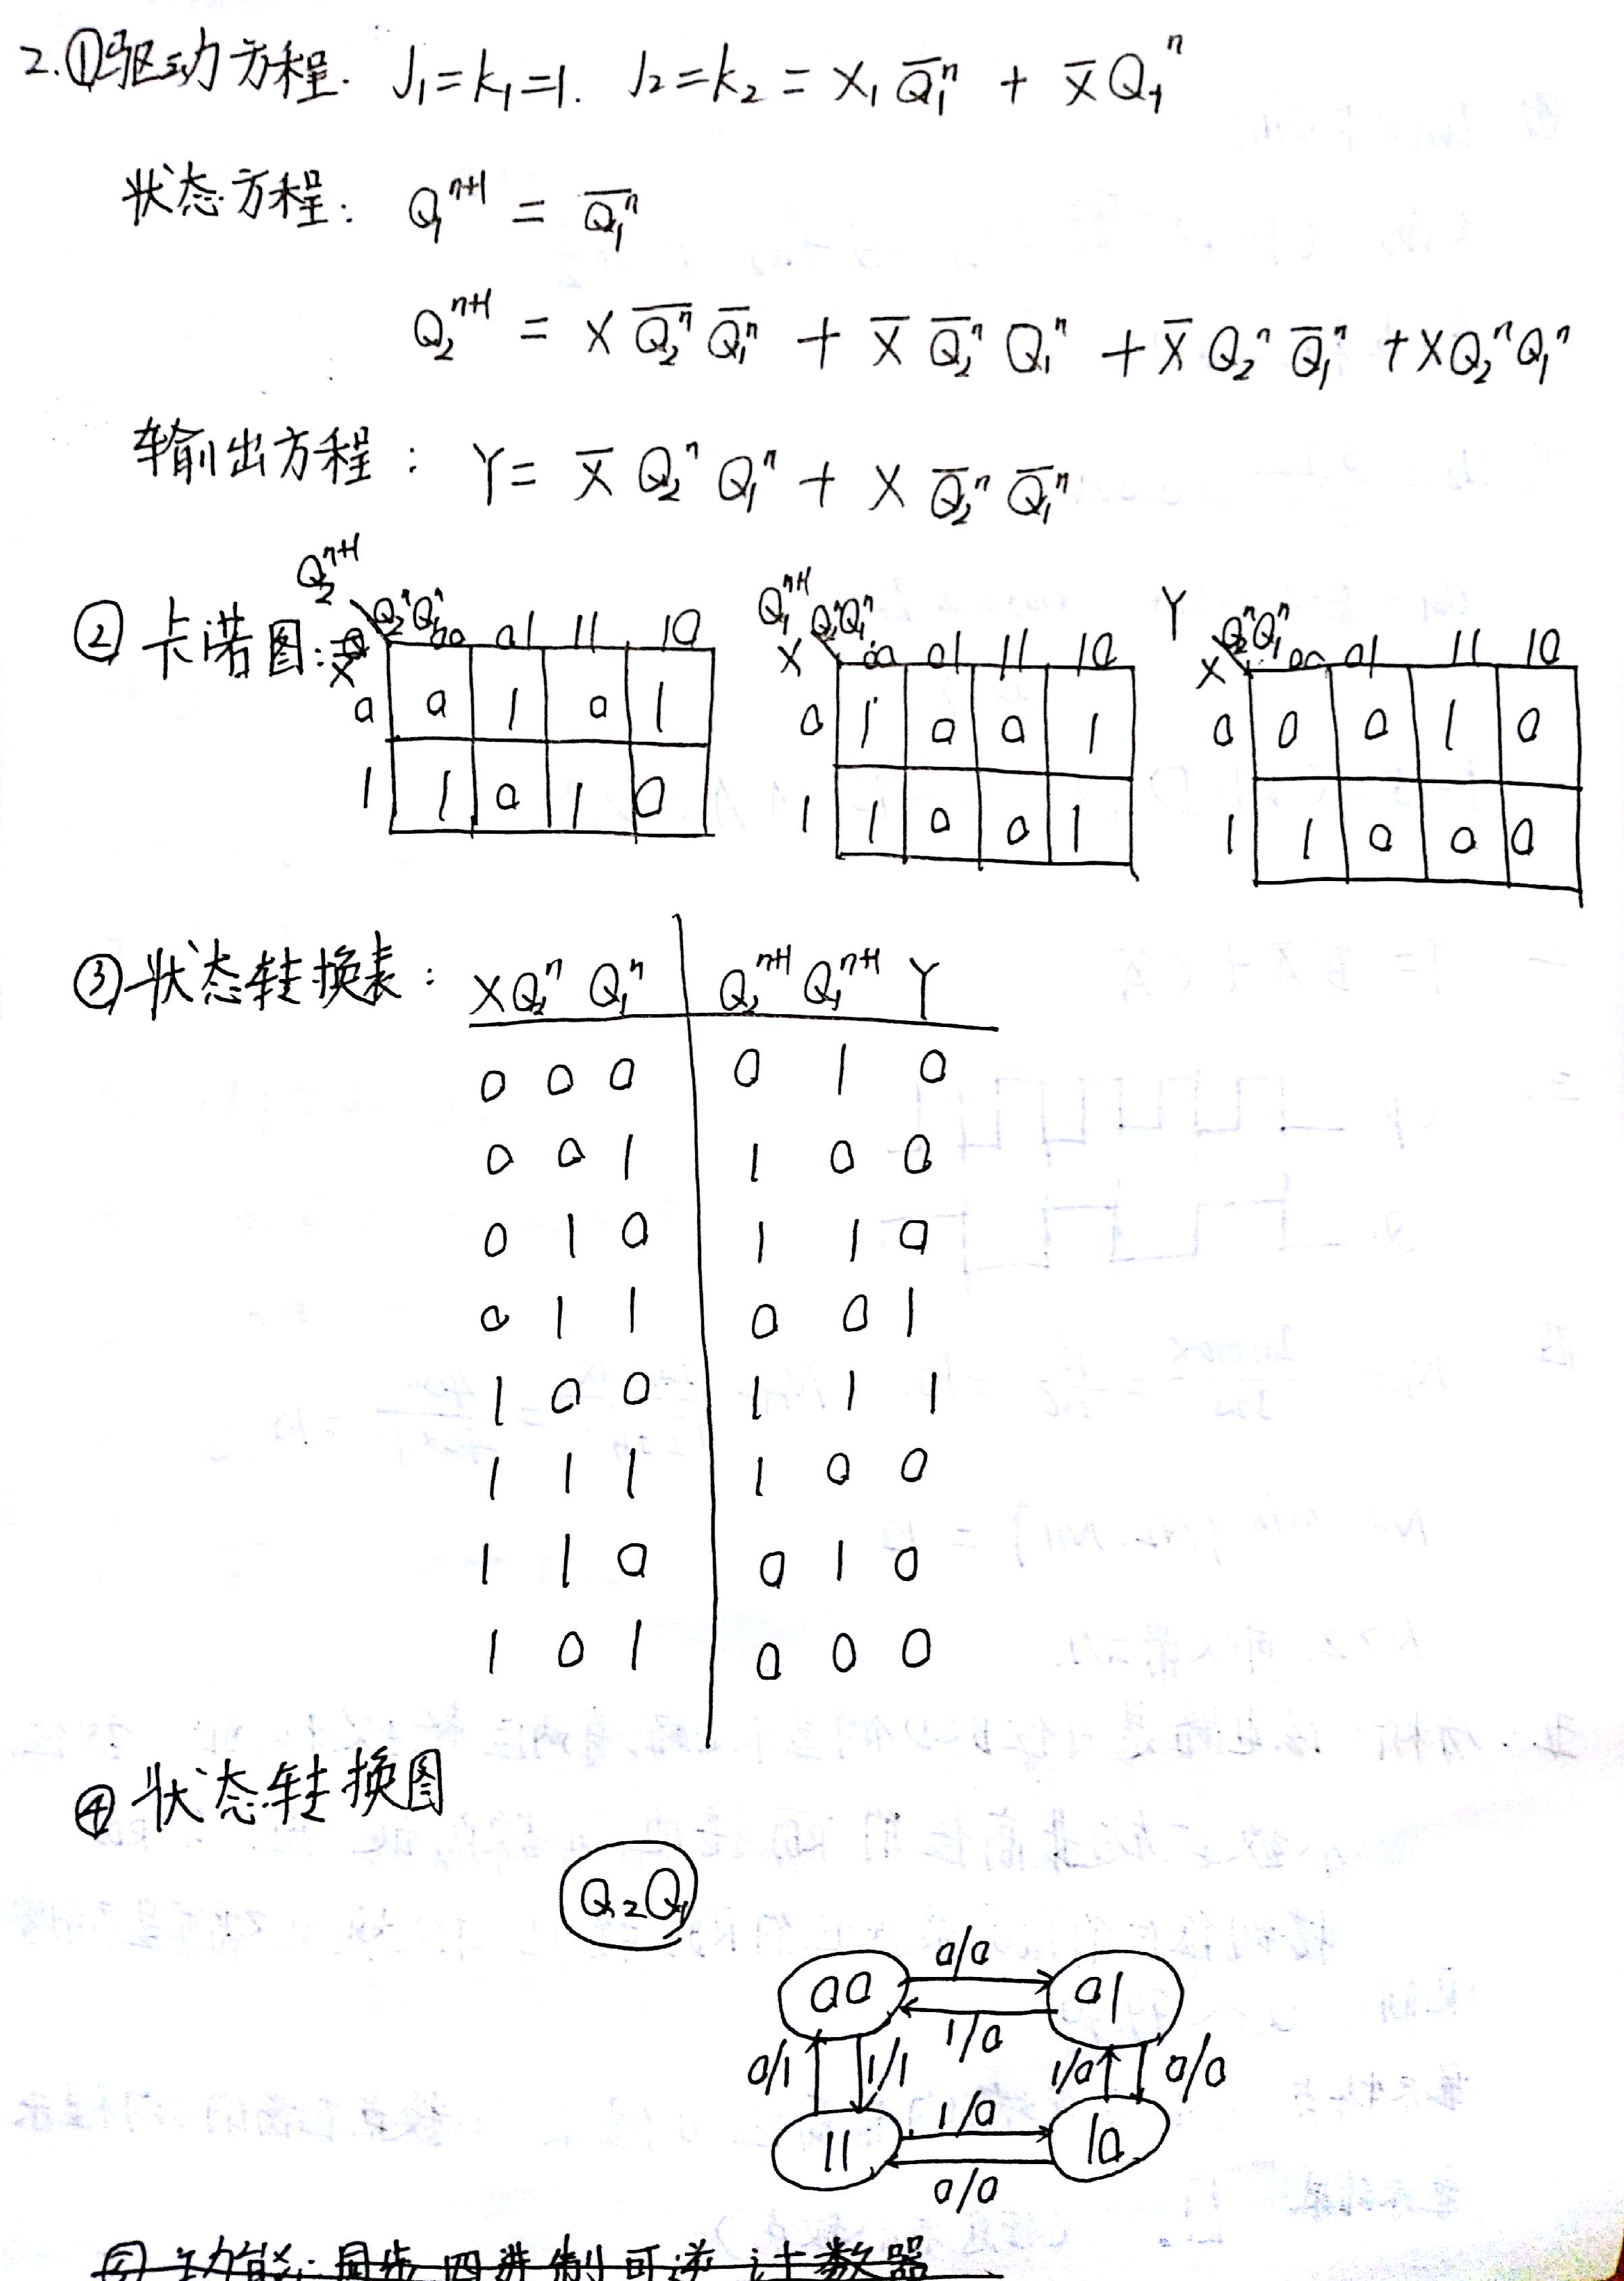 2.①驱动方程. J₁=k₁=1. J₂=k₂ = X₁Q̅₁ⁿ + X̅Q₁ⁿ
状态方程: Q₁ⁿ⁺¹ = Q̅₁ⁿ
Q₂ⁿ⁺¹ = XQ̅₂ⁿQ̅₁ⁿ + X̅Q̅₂ⁿQ₁ⁿ + X̅Q₂ⁿQ̅₁ⁿ + XQ₂ⁿQ₁ⁿ
输出方程: Y = X̅Q₂ⁿQ₁ⁿ + XQ̅₂ⁿQ̅₁ⁿ
② 卡诺图:
Q₂ⁿ⁺¹
X Q₂ⁿQ₁ⁿ 00 01 11 10
0 0 1 0 1
1 1 0 1 0
Q₁ⁿ⁺¹
X Q₂ⁿQ₁ⁿ 00 01 11 10
0 1 0 0 1
1 1 0 0 1
Y
X Q₂ⁿQ₁ⁿ 00 01 11 10
0 0 0 1 0
1 1 0 0 0
③状态转换表: XQ₂ⁿ Q₁ⁿ Q₂ⁿ⁺¹ Q₁ⁿ⁺¹ Y
0 0 0 0 1 0
0 0 1 1 0 0
0 1 0 1 1 0
0 1 1 0 0 1
1 0 0 1 1 1
1 1 1 1 0 0
1 1 0 0 1 0
1 0 1 0 0 0
④状态转换图
Q₂Q₁
0/0
00 01
1/0
0/1 1/1 1/0 0/0
1/0
11 10
0/0
⑤功能: 同步四进制可逆计数器